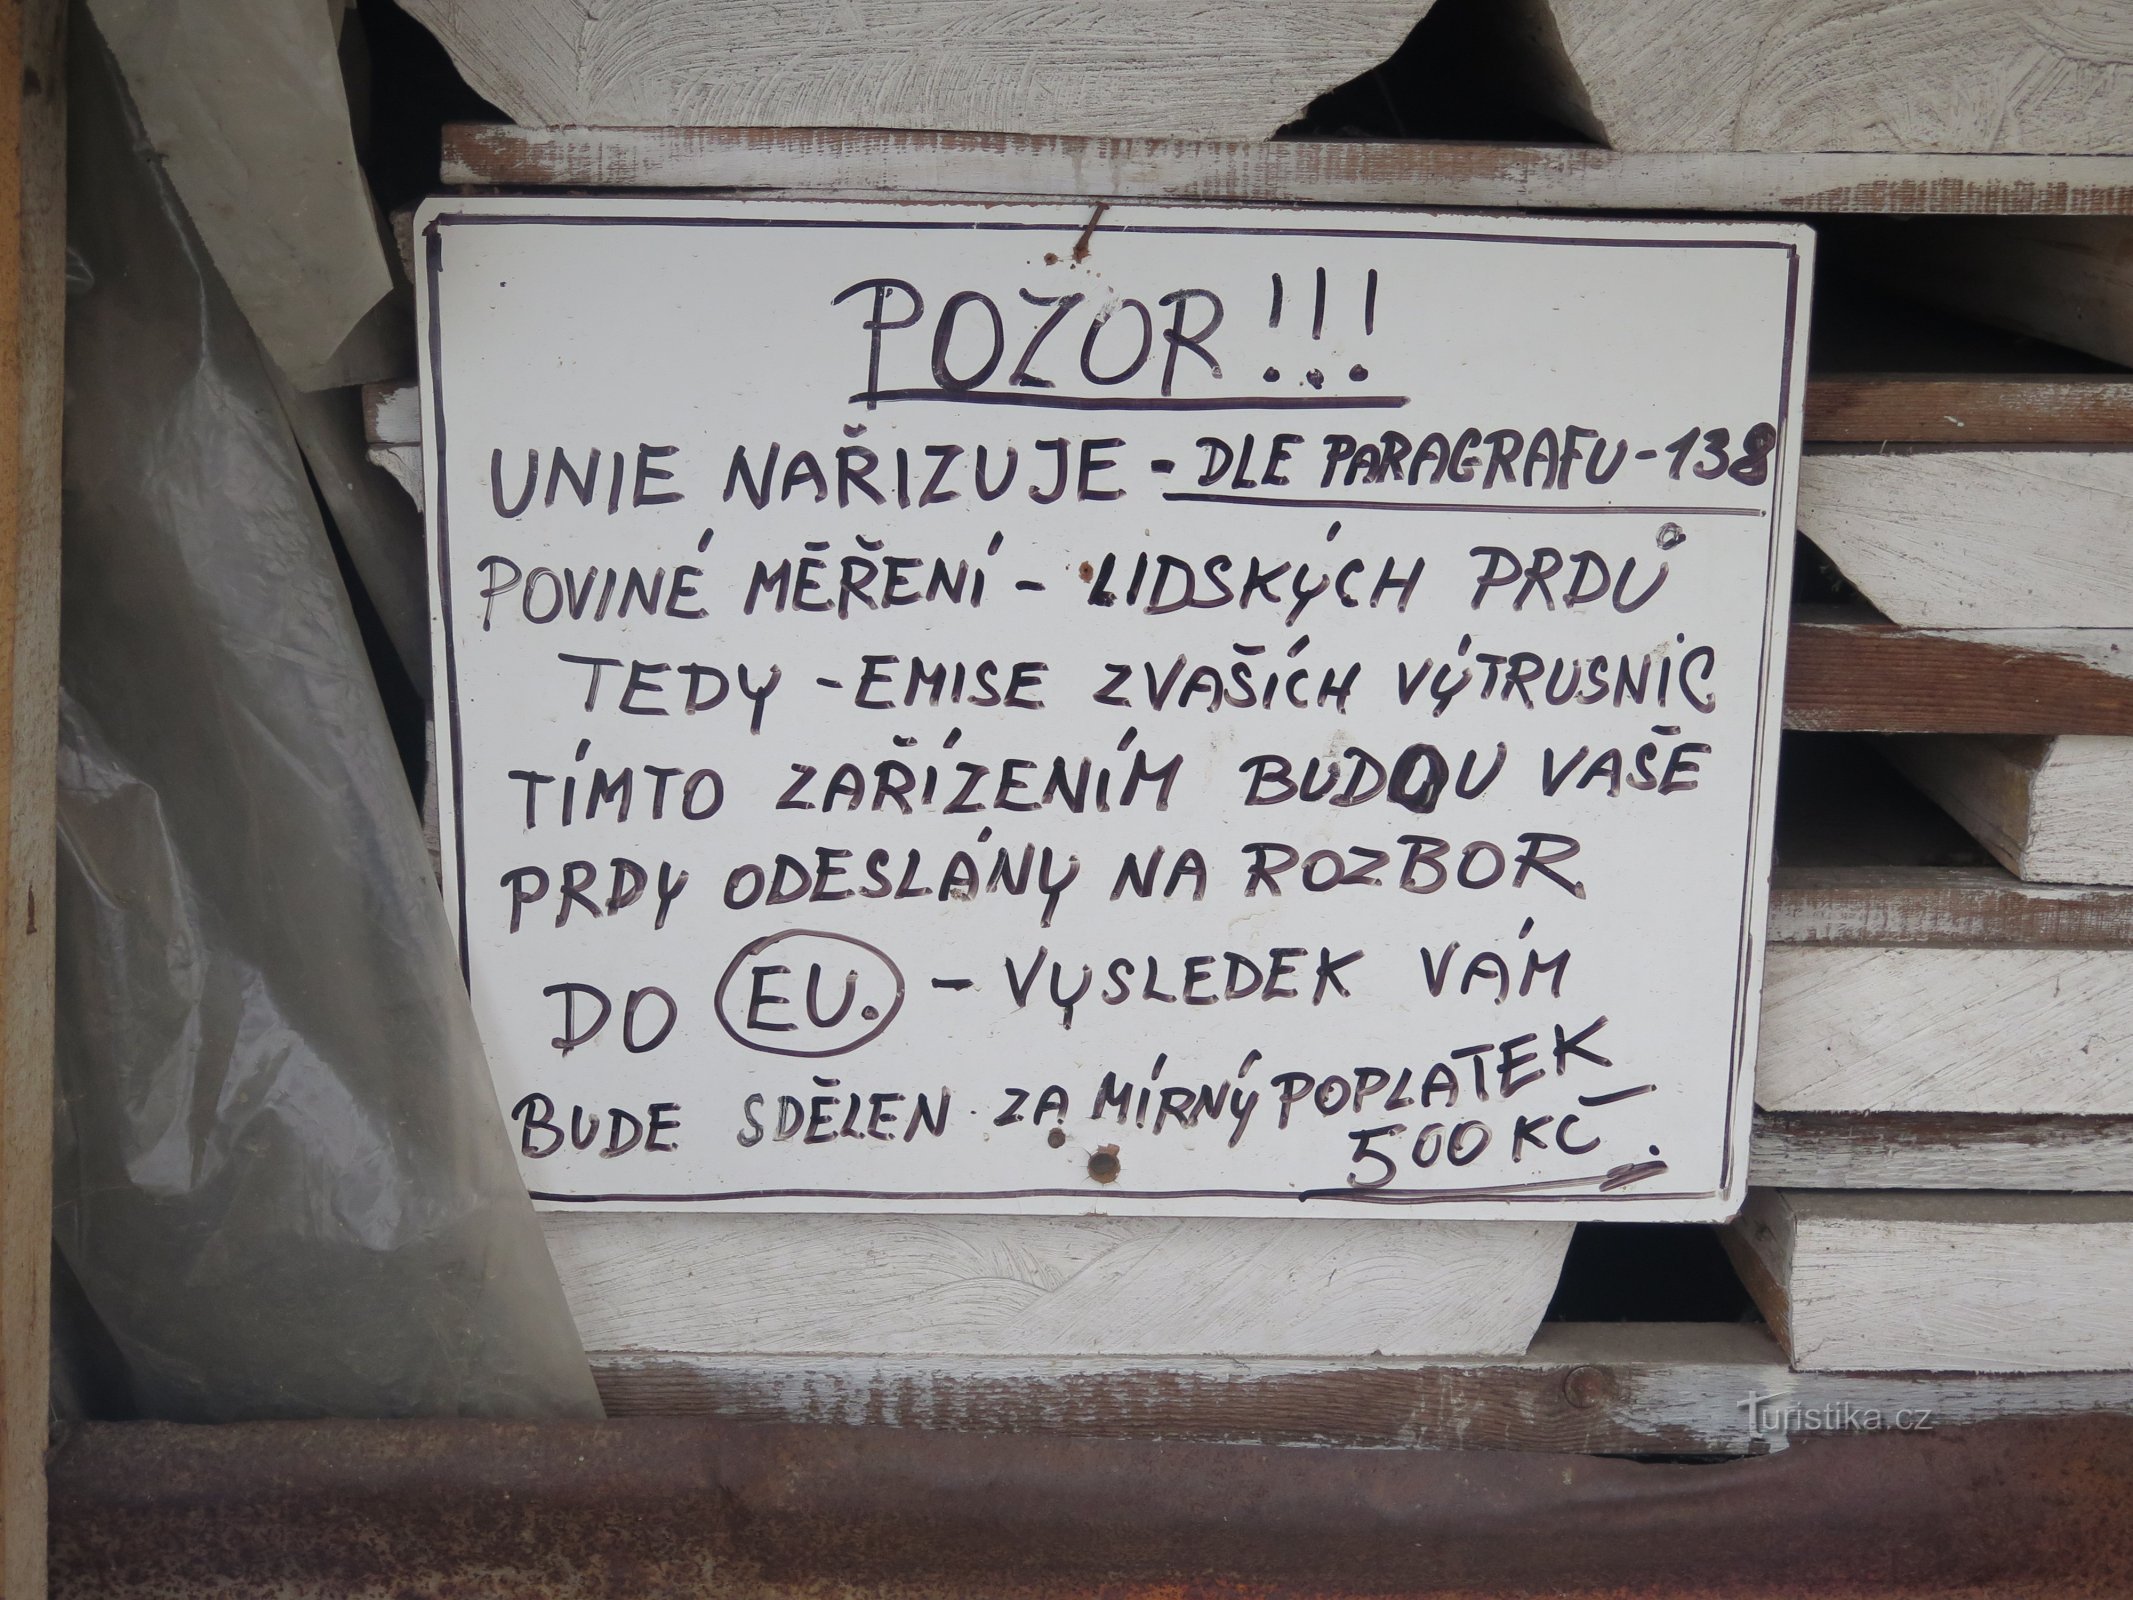 POZOR!!!
UNIE NAŘIZUJE - DLE PARAGRAFU - 138
POVINÉ MĚŘENÍ - LIDSKÝCH PRDŮ
TEDY - EMISE ZVAŠÍCH VÝTRUSNIC
TÍMTO ZAŘÍZENÍM BUDOU VAŠE
PRDY ODESLÁNY NA ROZBOR
DO EU. - VYSLEDEK VÁM
BUDE SDĚLEN ZA MÍRNÝ POPLATEK
500 KČ.
Turistika.cz